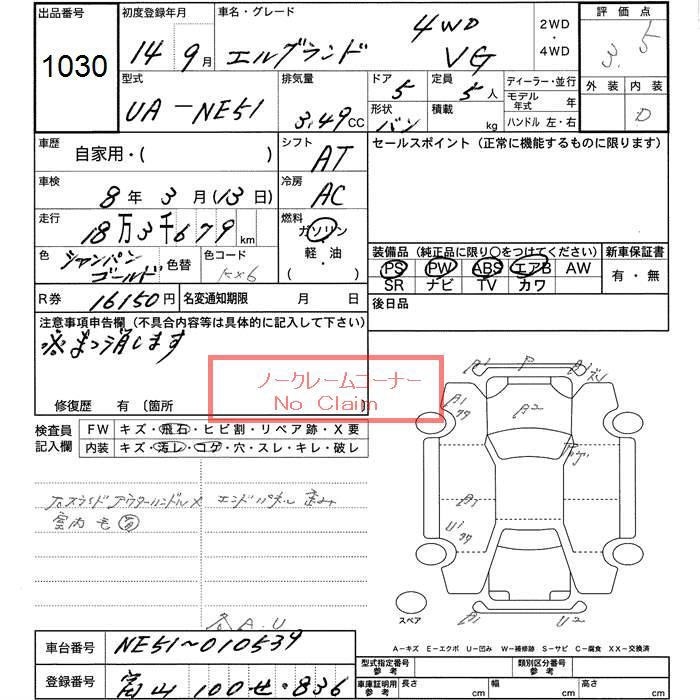 出品番号
1030
初度登録年月
14 9月
車名・グレード
エルグランド 4WD VG
2WD
・
4WD
評価点
3.5
型式
UA-NE51
排気量
3.49 CC
ドア 5
定員 5人
形状 バン
積載 kg
ディーラー・並行
モデル年式 年
ハンドル 左・右
外装 内装
D
車歴
自家用・( )
シフト
AT
セールスポイント (正常に機能するものに限ります)
車検
8年3月(13日)
冷房
AC
走行
18万3千679km
燃料
ガソリン・
軽・油
( )
色
シャンパンゴールド
色替
色コード
KX6
装備品 (純正品に限り○をつけてください)
PS PW ABS エアB AW
SR ナビ TV カワ
新車保証書
有・無
R券 16150円
名変通知期限 月 日
後日品
注意事項申告欄 (不具合内容等は具体的に記入して下さい)
ノークレームコーナー
No Claim
修復歴 有 〔箇所
検査員
記入欄
FW キズ・飛石・ヒビ割・リペア跡・X要
内装 キズ・汚レ・コゲ・穴・スレ・キレ・破レ
エンドパネル歪み
室内毛有
各A.U
A1 P A1
A1
A2
A1
U1
A1 U2
スペア
A-キズ E-エクボ U-凹み W-補修跡 S-サビ C-腐食 XX-交換済
車台番号
NE51~010539
登録番号
富山 100 せ・836
型式指定番号
参考
類別区分番号
参考
車庫証明用
参考
長さ cm
幅 cm
高さ cm